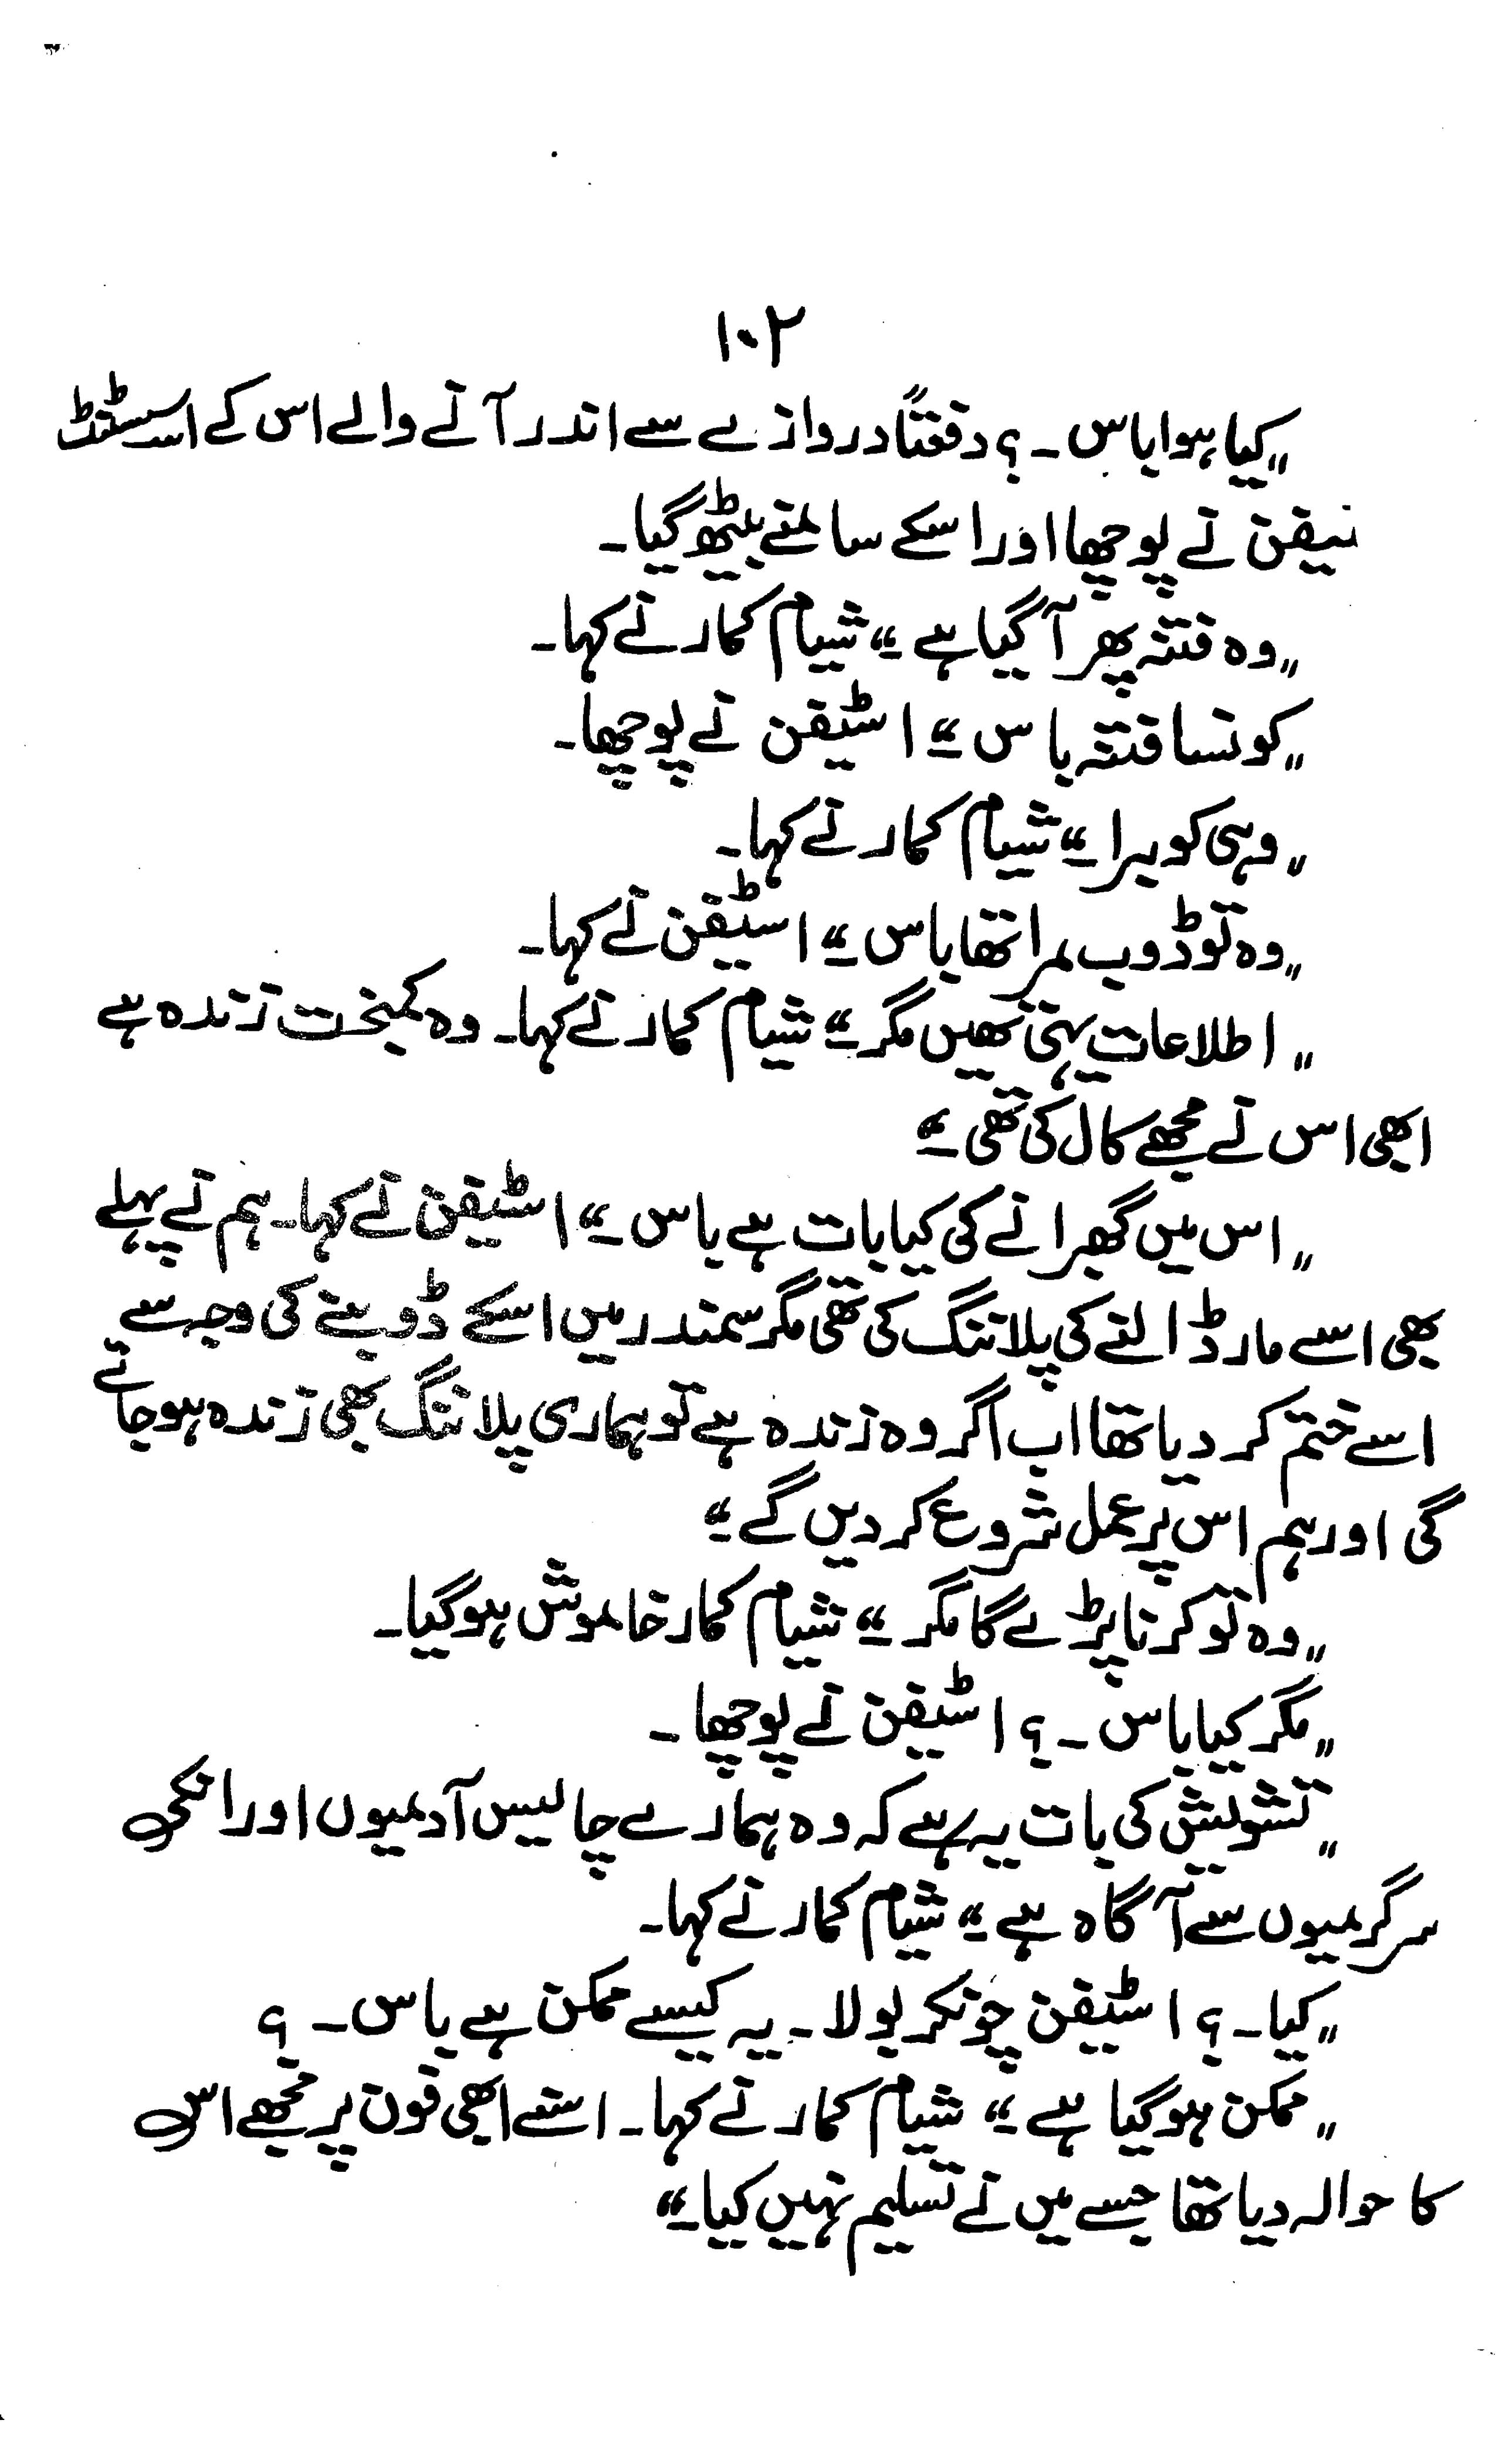 ۱۰۲
"کیا ہوا باس۔؟ دفعتاً دروازے سے اندر آنے والے اس کے اسسٹنٹ
ٹیفن نے پوچھا اور اسکے سامنے بیٹھ گیا۔
"وہ فتنہ پھر آ گیا ہے" شیام کمار نے کہا۔
"کونسا فتنہ باس" اسٹیفن نے پوچھا۔
"وہی کوبرا" شیام کمار نے کہا۔
"وہ تو ڈوب مرا تھا باس" اسٹیفن نے کہا۔
"اطلاعات یہی تھیں مگر" شیام کمار نے کہا۔ وہ کمبخت زندہ ہے
ابھی اس نے مجھے کال کی تھی"
"اس میں گھبرانے کی کیا بات ہے باس" اسٹیفن نے کہا۔ ہم نے پہلے
بھی اسے مار ڈالنے کی پلاننگ کی تھی مگر سمندر میں اسکے ڈوبنے کی وجہ سے
اسے ختم کر دیا تھا اب اگر وہ زندہ ہے تو ہماری پلاننگ بھی زندہ ہو جائے
گی اور ہم اس پر عمل شروع کر دیں گے"
"وہ تو کرنا پڑے گا مگر" شیام کمار خاموش ہو گیا۔
"مگر کیا باس۔؟ اسٹیفن نے پوچھا۔
"تشویش کی بات یہ ہے کہ وہ ہمارے چالیس آدمیوں اور انکی
سرگرمیوں سے آگاہ ہے" شیام کمار نے کہا۔
"کیا۔؟ اسٹیفن چونکر بولا۔ یہ کیسے ممکن ہے باس۔؟
"ممکن ہو گیا ہے" شیام کمار نے کہا۔ اسنے ابھی فون پر مجھے اس
کا حوالہ دیا تھا جسے میں نے تسلیم نہیں کیا"